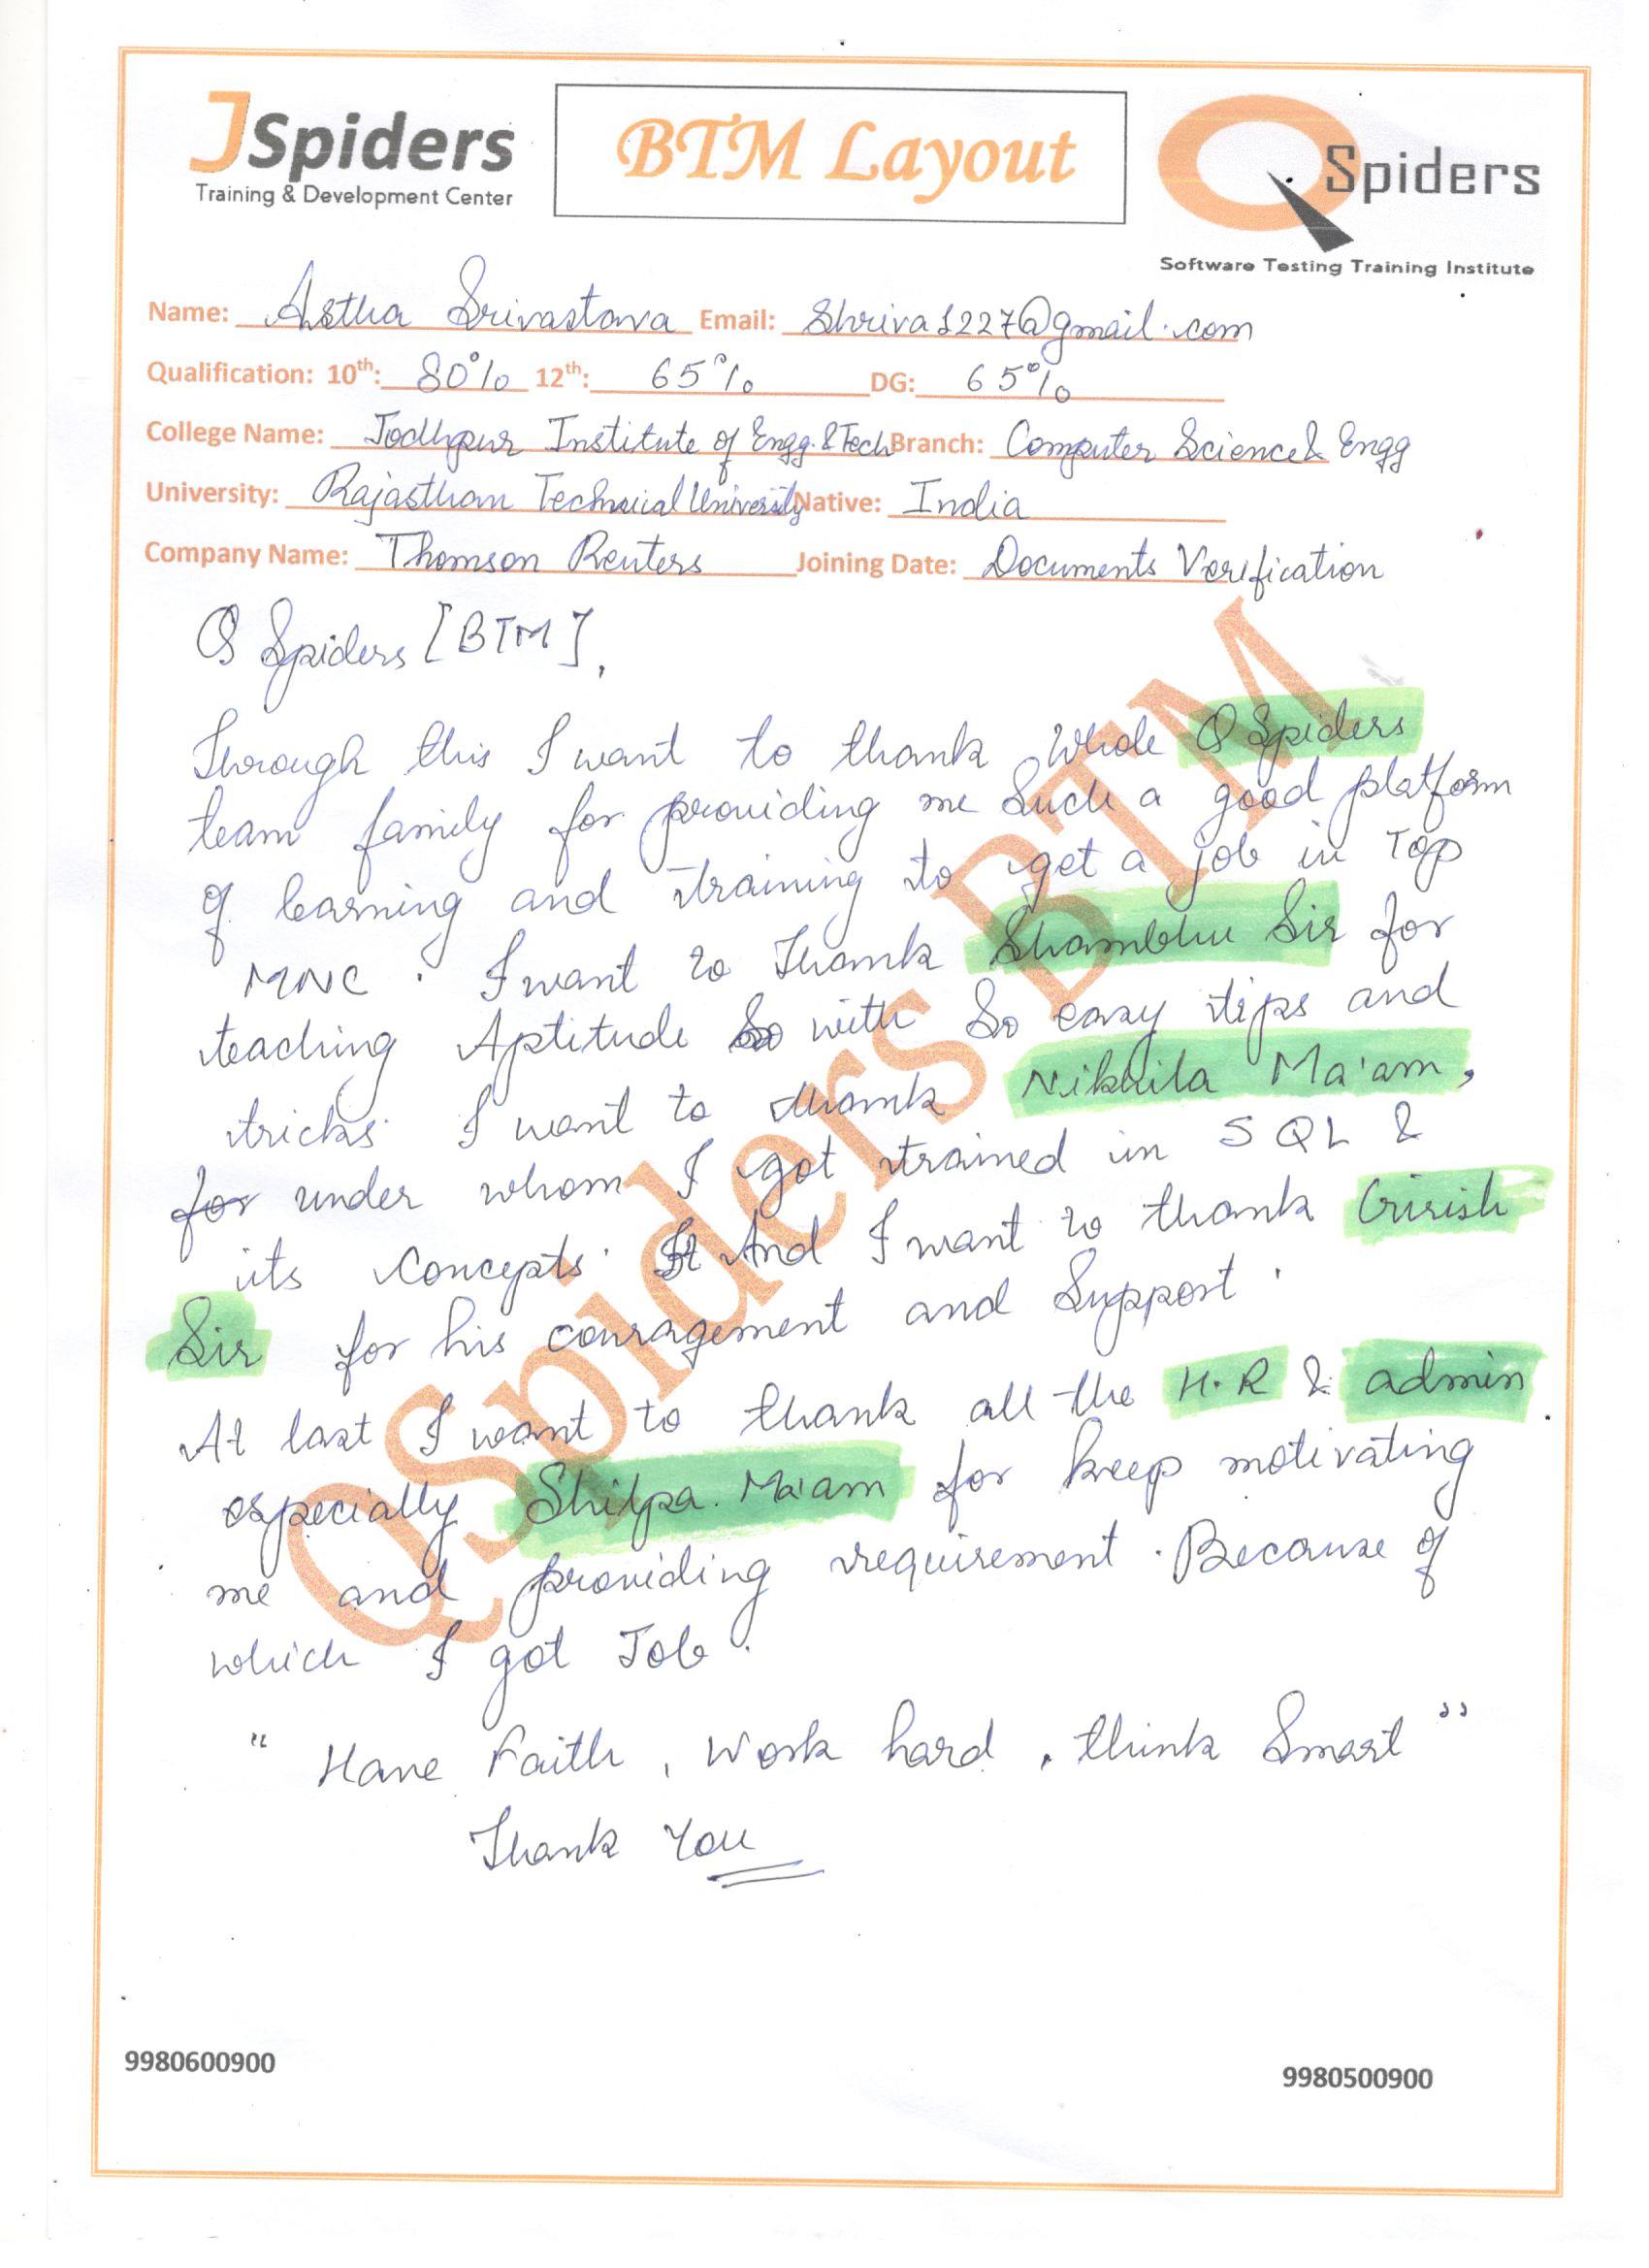 JSpiders
Training & Development Center
BTM Layout
QSpiders
Software Testing Training Institute
Name: Astha Srivastava Email: Shriva1227@gmail.com
Qualification: 10th: 80% 12th: 65% DG: 65%
College Name: Jodhpur Institute of Engg. & Tech Branch: Computer Science & Engg
University: Rajasthan Technical University Native: India
Company Name: Thomson Reuters Joining Date: Documents Verification
Q Spiders [BTM],
Through this I want to thank whole Q Spiders
team family for providing me such a good platform
of learning and training to get a job in Top
MNC. I want to thank Shambhu Sir for
teaching Aptitude So with So easy tips and
tricks. I want to thank Nikhila Ma'am,
for under whom I got trained in SQL &
its concepts. And I want to thank Girish
Sir for his couragement and Support.
At last I want to thank all the H.R & admin.
especially Shilpa Ma'am for keep motivating
me and providing requirement. Because of
which I got Job.
" Have Faith, Work hard, think Smart "
Thank You
QSpiders BTM
9980600900
9980500900